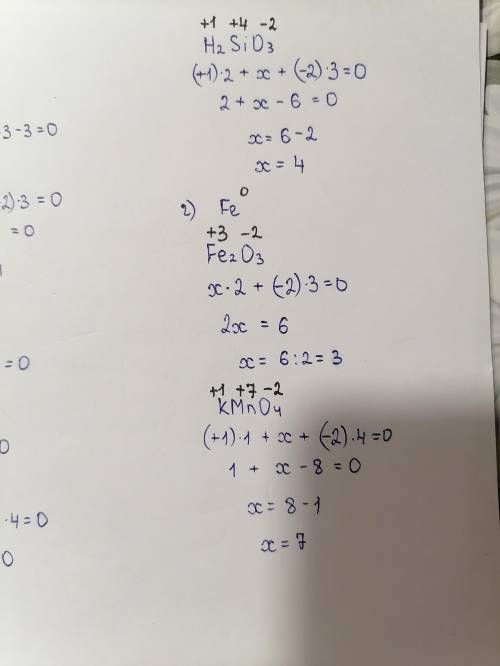 +1 +4 -2
H₂SiO₃
(+1)·2 + x + (-2)·3=0
2 + x - 6 = 0
x= 6-2
x = 4
2) Fe⁰
+3 -2
Fe₂O₃
x·2 + (-2)·3=0
2x = 6
x= 6:2=3
+1 +7 -2
KMnO₄
(+1)·1 + x + (-2)·4=0
1 + x - 8 = 0
x= 8-1
x=7
3-3=0
2)·3=0
=0
=0
·4=0
0